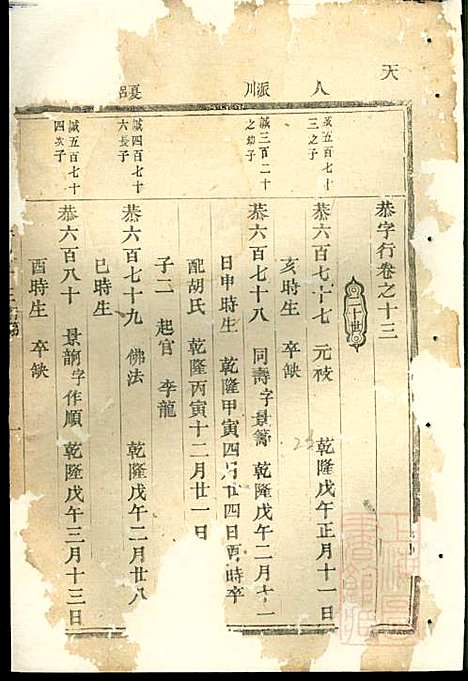 天
八
派川
夏呂
恭字行卷之十三
二十世
誠五百七十
三之子
恭六百七十七 元祾 乾隆戊午正月十一日
亥時生 卒缺
誠三百二十
之幼子
恭六百七十八 同壽字景籌 乾隆戊午二月十二
日申時生 乾隆甲寅四月廿四日酉時卒
配胡氏 乾隆丙寅十二月廿一日
子二 起官 李龍
誠四百七十
六長子
恭六百七十九 佛法 乾隆戊午二月廿八
巳時生
誠五百七十
四次子
恭六百八十 景韵字作順 乾隆戊午三月十三日
酉時生 卒缺